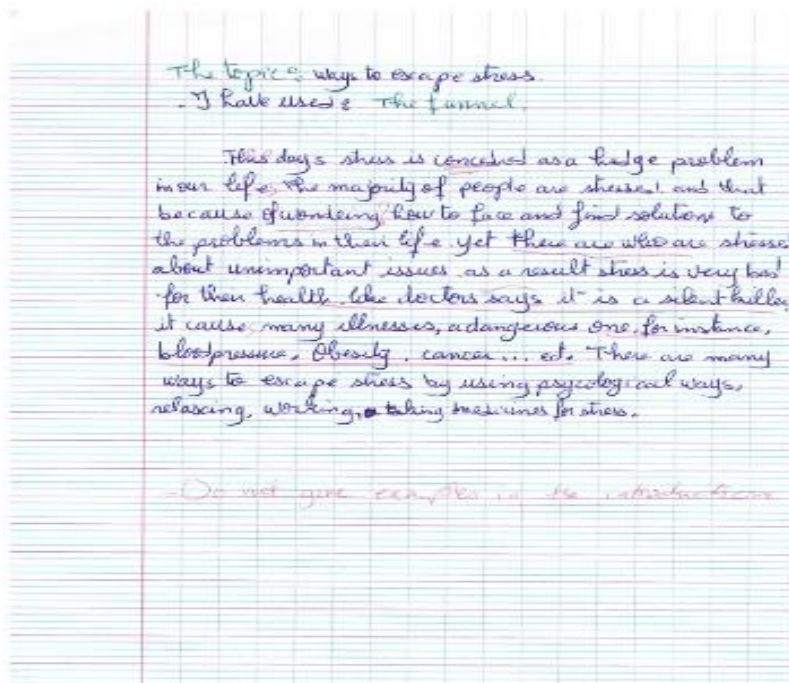 The topic : ways to escape stress.
- I have used : The funnel.
This days stress is conceived as a hudge problem
in our life, the majority of people are stressed and that
because of wondering how to face and find solutions to
the problems in their life yet there are who are stressed
about unimportant issues as a result stress is very bad
for their health like doctors says it is a silent killer,
it cause many illnesses, a dangerious one, for instance,
bloodpressure, Obesity, cancer... ect. There are many
ways to escape stress by using psycological ways,
relaxing, working, taking medicines for stress.
- Do not give examples in the introduction